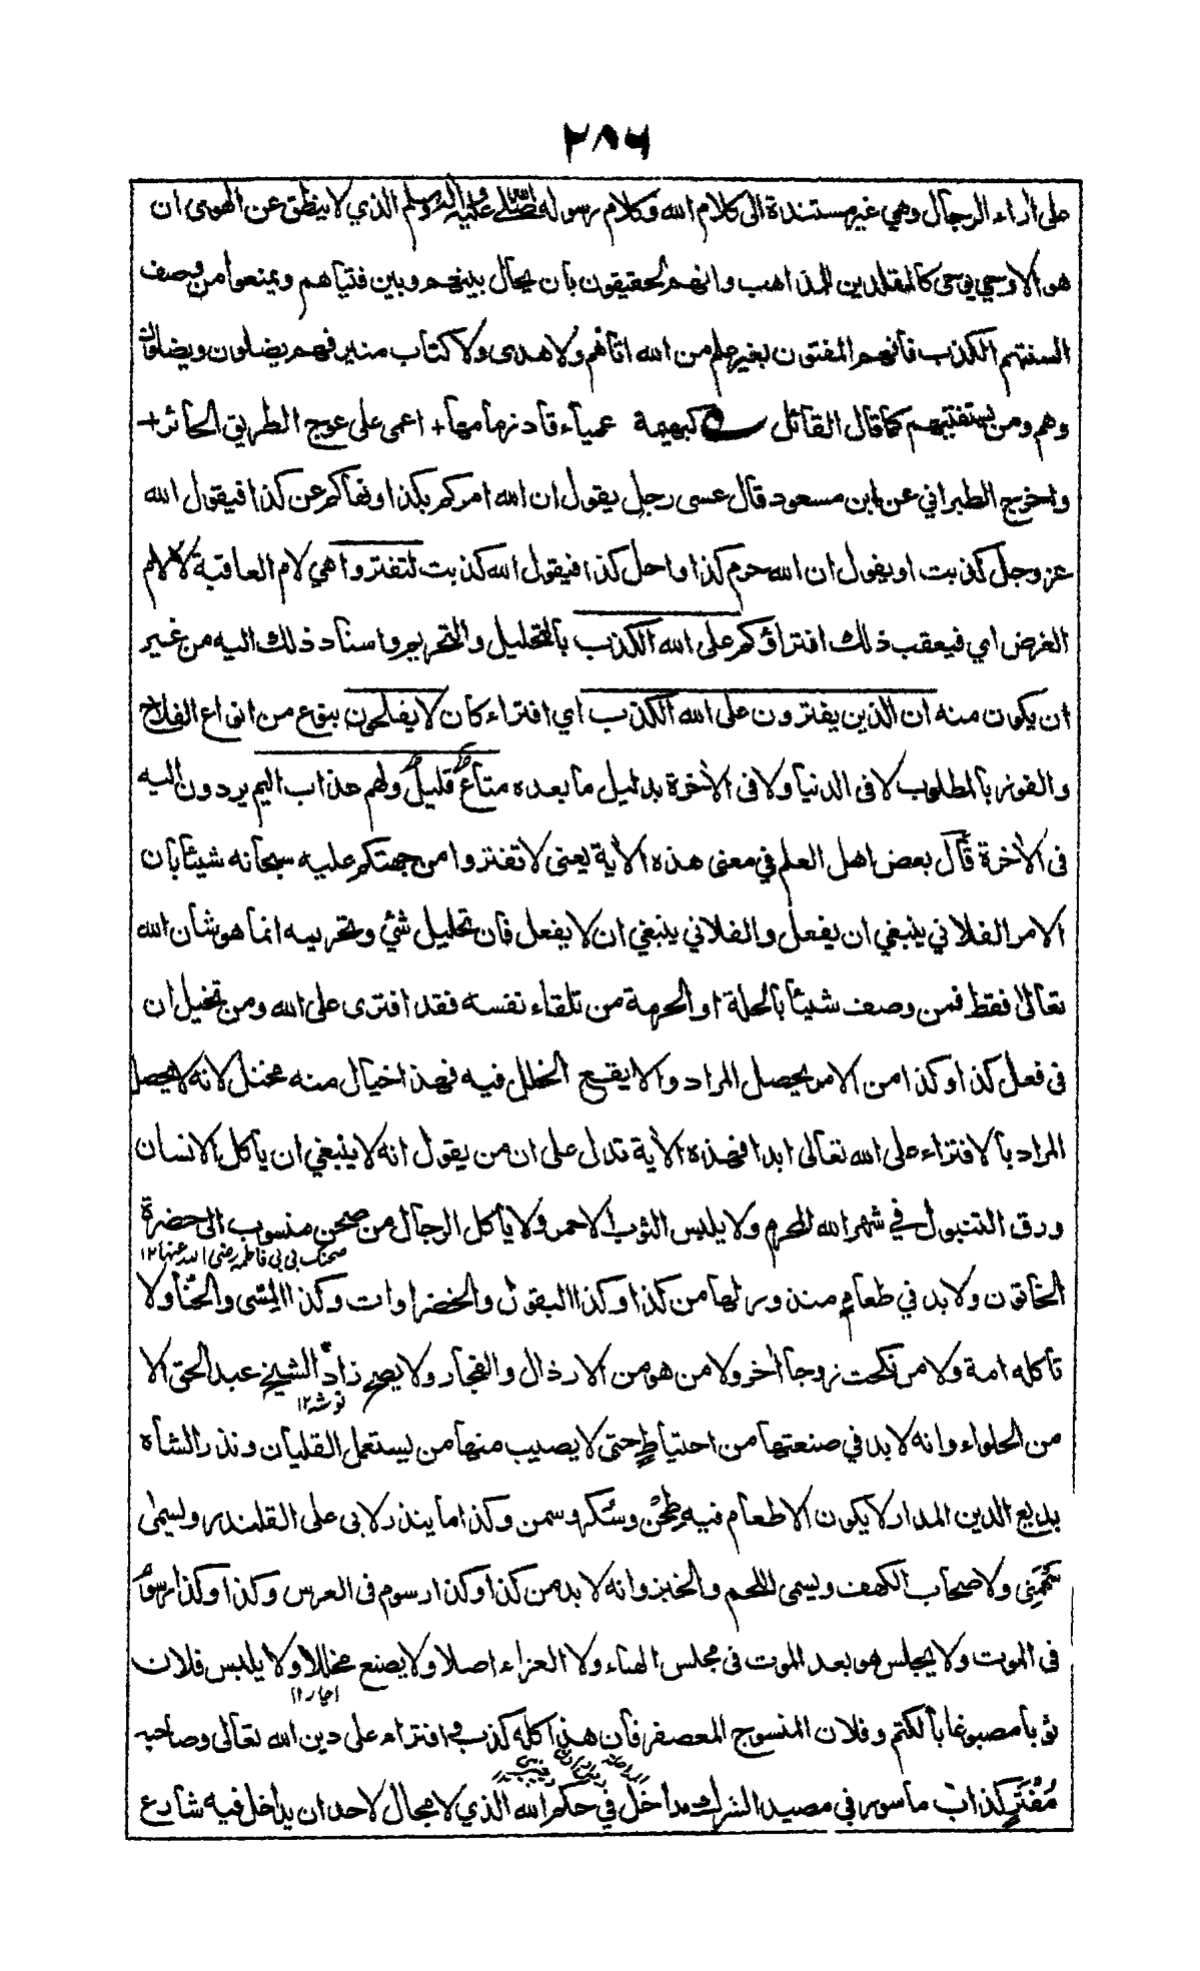 ٢٨٦
على اراء الرجال وهي غير مستندة الى كلام الله وكلام رسوله صلى الله عليه واله وسلم الذي لا ينطق عن الهوى ان
هو الا وحي يوحى كالمقلدين للمذاهب وانهم لحقيقون بان يحال بينهم وبين فتياهم ويمنعوا من وصف
السنتهم الكذب فانهم المفتون بغير علم من الله اتاهم ولا هدى ولا كتاب منير فهم يضلون ويضلون
وهم ومن يستفتيهم كما قال القائل كبهيمة عمياء قاد زمامها + اعمى على عوج الطريق الحائر +
واخرج الطبراني عن ابن مسعود قال عسى رجل يقول ان الله امركم بكذا ونهاكم عن كذا فيقول الله
عز وجل كذبت او يقول ان الله حرم كذا واحل كذا فيقول الله كذبت لتفتروا هي لام العاقبة لا لام
الغرض اي فيعقب ذلك افتراؤكم على الله الكذب بالتحليل والتحريم واسناد ذلك اليه من غير
ان يكون منه ان الذين يفترون على الله الكذب اي افتراء كان لا يفلحون بنوع من انواع الفلاح
والفوز بالمطلوب لا في الدنيا ولا في الأخرة بدليل ما بعده متاعٌ قليلٌ ولهم عذاب اليم يردون اليه
فى الأخرة قال بعض اهل العلم في معنى هذه الاية يعنى لا تفتروا من جهتكم عليه سبحانه شيئا بان
الامر الفلاني ينبغي ان يفعل والفلاني ينبغي ان لا يفعل فان تحليل شيء وتحريمه انما هو شأن الله
تعالى فقط فمن وصف شيئا بالحلة او الحرمة من تلقاء نفسه فقد افترى على الله ومن تخيل ان
فى فعل كذا وكذا من الامر يحصل المراد والا يقع الخلل فيه فهذا خيال منه مختل لانه لا يحصل
المراد بالافتراء على الله تعالى ابدا فهذه الأية تدل على ان من يقول انه لا ينبغي ان ياكل الانسان
ورق التنبول في شهر الله المحرم ولا يلبس الثوب الاحمر ولا يأكل الرجال من صحن منسوب الى حضرة
صحنك بى بى فاطمه رضى الله عنها ١٢
الخاتون ولا بد في طعامٍ منذور لها من كذا وكذا البقول والخضراوات وكذا المِسّى والحنا ولا
تاكله امة ولا من نكحت زوجا أخر ولا من هو من الارذال والفجار ولا يصح زاد الشيخ عبد الحق الا
توشه ١٢
من الحلواء وانه لا بد في صنعتها من احتياطٍ حتى لا يصيب منها من يستعمل القليان ونذر الشاه
بديع الدين المدار لا يكون الا طعام فيه طحن وسُكر وسمن وكذا ما ينذر لابى على القلندر ويسمى
سُهمَنِى ولاصحاب الكهف ويسمى اللحم والخبز وانه لا بد من كذا وكذا رسوم فى العرس وكذا وكذا رسوم
فى الموت ولا يجلس هو بعد الموت فى مجلس الهناء ولا العزاء اصلا ولا يصنع مخللا ولا يلبس فلان
اچار ١٢
ثوبا مصبوغا بالكتم وفلان المنسوج المعصفر فان هذا كله كذب وافتراء على دين الله تعالى وصاحبه
مُفْتَرٍ كذاب ماسور في مصيد الشرك مداخل في حكم الله الذي لا مجال لاحد ان يداخل فيه شارع